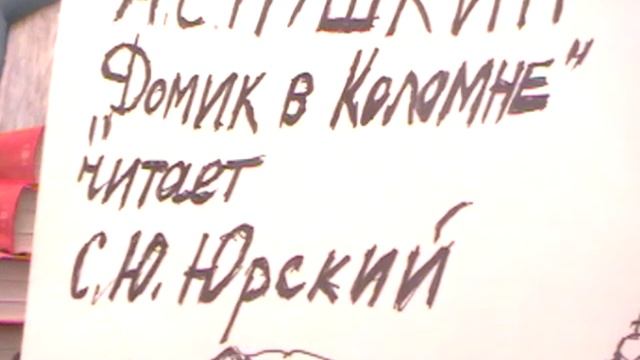 А.С.ПУШКИН
„Домик в Коломне"
читает
С.Ю.Юрский